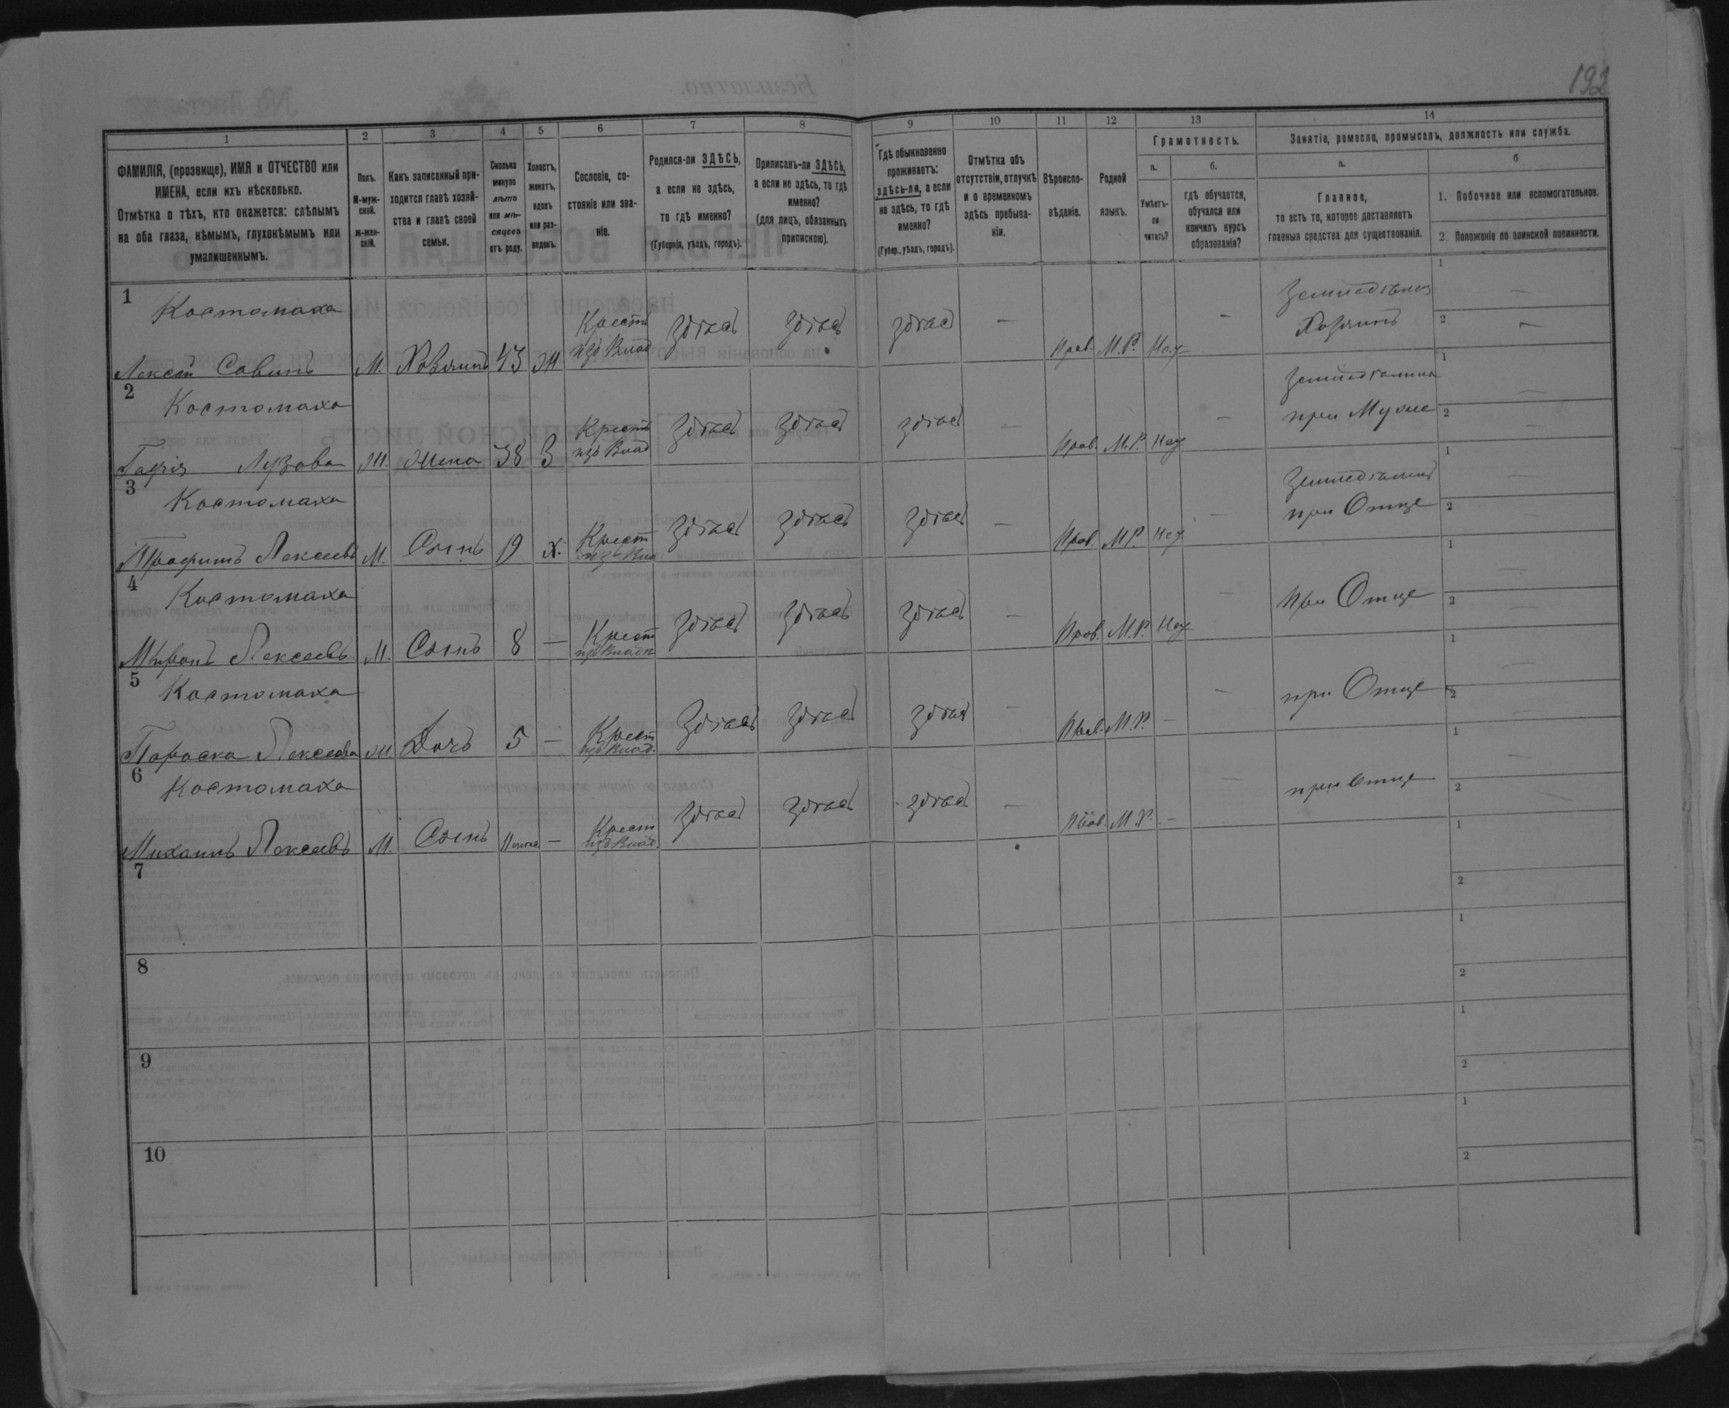 192
1 2 3 4 5 6 7 8 9 10 11 12 13 14
ФАМИЛІЯ, (прозвище), ИМЯ и ОТЧЕСТВО или
ИМЕНА, если ихъ нѣсколько.
Отмѣтка о тѣхъ, кто окажется: слѣпымъ
на оба глаза, нѣмымъ, глухонѣмымъ или
умалишеннымъ.
Полъ.
М-муж-
ской.
ж-жен-
скій.
Какъ записанный при-
ходится главѣ хозяй-
ства и главѣ своей
семьи.
Сколько
минуло
лѣтъ
или мѣ-
сяцевъ
отъ роду.
Холостъ,
женатъ,
вдовъ
или раз-
веденъ.
Сословіе, со-
стояніе или зва-
ніе.
Родился-ли ЗДѢСЬ,
а если не здѣсь,
то гдѣ именно?
(Губернія, уѣздъ, городъ).
Приписанъ-ли ЗДѢСЬ,
а если не здѣсь, то гдѣ
именно?
(для лицъ, обязанныхъ
припискою).
Гдѣ обыкновенно
проживаетъ:
здѣсь-ли, а если
не здѣсь, то гдѣ
именно?
(Губер., уѣздъ, городъ).
Отмѣтка объ
отсутствіи, отлучкѣ
и о временномъ
здѣсь пребыва-
ніи.
Вѣроиспо-
вѣданіе.
Родной
языкъ.
Грамотность.
а.
Умѣетъ-
ли
читать?
б.
гдѣ обучается,
обучался или
кончилъ курсъ
образованія?
Занятіе, ремесло, промыселъ, должность или служба.
а.
Главное,
то есть то, которое доставляетъ
главныя средства для существованія.
б
1. Побочное или вспомогательное.
2. Положеніе по воинской повинности.
1 Костомаха
Лексѣй Савинъ М. Хозяинъ 43 Ж Крест здѣсь здѣсь здѣсь — Прав. М.Р. Нѣт — Хозяинъ 1 — 2 —
2 Костомаха
М. жена 38 З Крест здѣсь здѣсь здѣсь — Прав. М.Р. Нѣт — при Мужѣ 1 — 2 —
3 Костомаха
Трофимъ Лексеевъ М. Сынъ 19 х. Крест здѣсь здѣсь здѣсь — Прав. М.Р. Нѣт — при Отце 1 — 2 —
4 Костомаха
Миронъ Лексеевъ М. Сынъ 8 — Крест здѣсь здѣсь здѣсь — Прав. М.Р. Нѣт — при Отце 1 — 2 —
5 Костомаха
Параска Лексеева Ж. Дочь 5 — Крест здѣсь здѣсь здѣсь — Прав. М.Р. — — при Отце 1 — 2 —
6 Костомаха
Михаилъ Лексеевъ М. Сынъ — Крест здѣсь здѣсь здѣсь — Прав. М.Р. — — при Отце 1 — 2 —
7 1 2
8 1 2
9 1 2
10 1 2